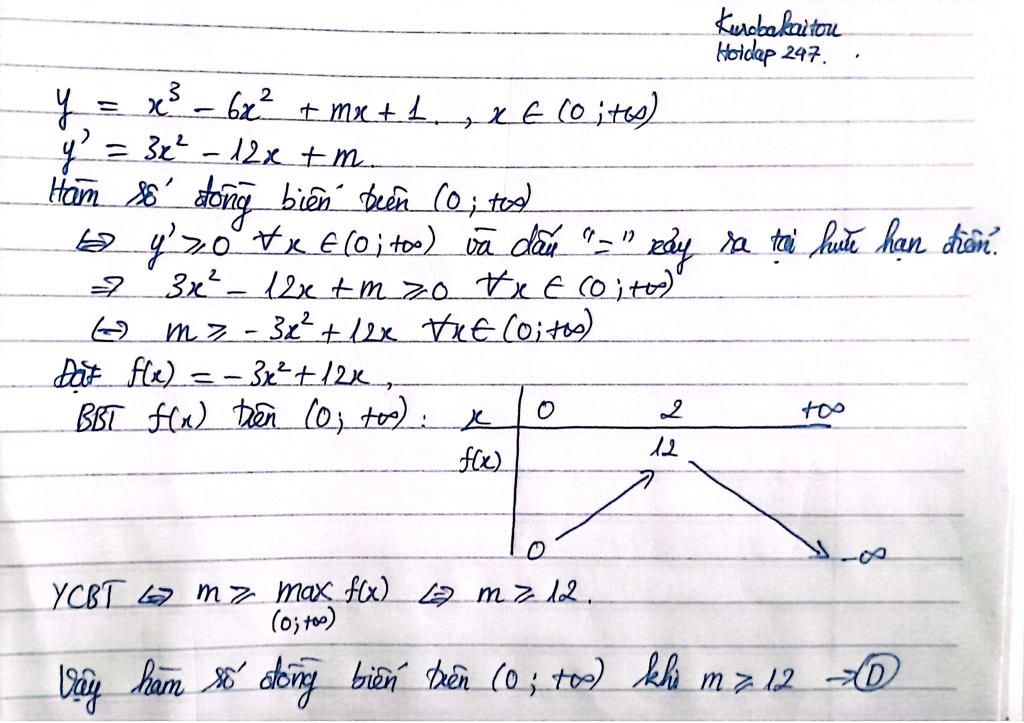 Kurobakaitou
Hoidap 247.
y = x³ - 6x² + mx + 1. , x ∈ (0 ; +∞)
y' = 3x² - 12x + m.
Hàm số đồng biến trên (0 ; +∞)
⇔ y' ≥ 0 ∀x ∈ (0 ; +∞) và dấu "=" xảy ra tại hữu hạn điểm.
⇒ 3x² - 12x + m ≥ 0 ∀x ∈ (0 ; +∞)
⇔ m ≥ - 3x² + 12x ∀x ∈ (0 ; +∞)
Đặt f(x) = - 3x² + 12x ,
BBT f(x) trên (0 ; +∞) : x 0 2 +∞
f(x) 12
0 -∞
YCBT ⇔ m ≥ max f(x) ⇔ m ≥ 12.
(0 ; +∞)
Vậy hàm số đồng biến trên (0 ; +∞) khi m ≥ 12 → D